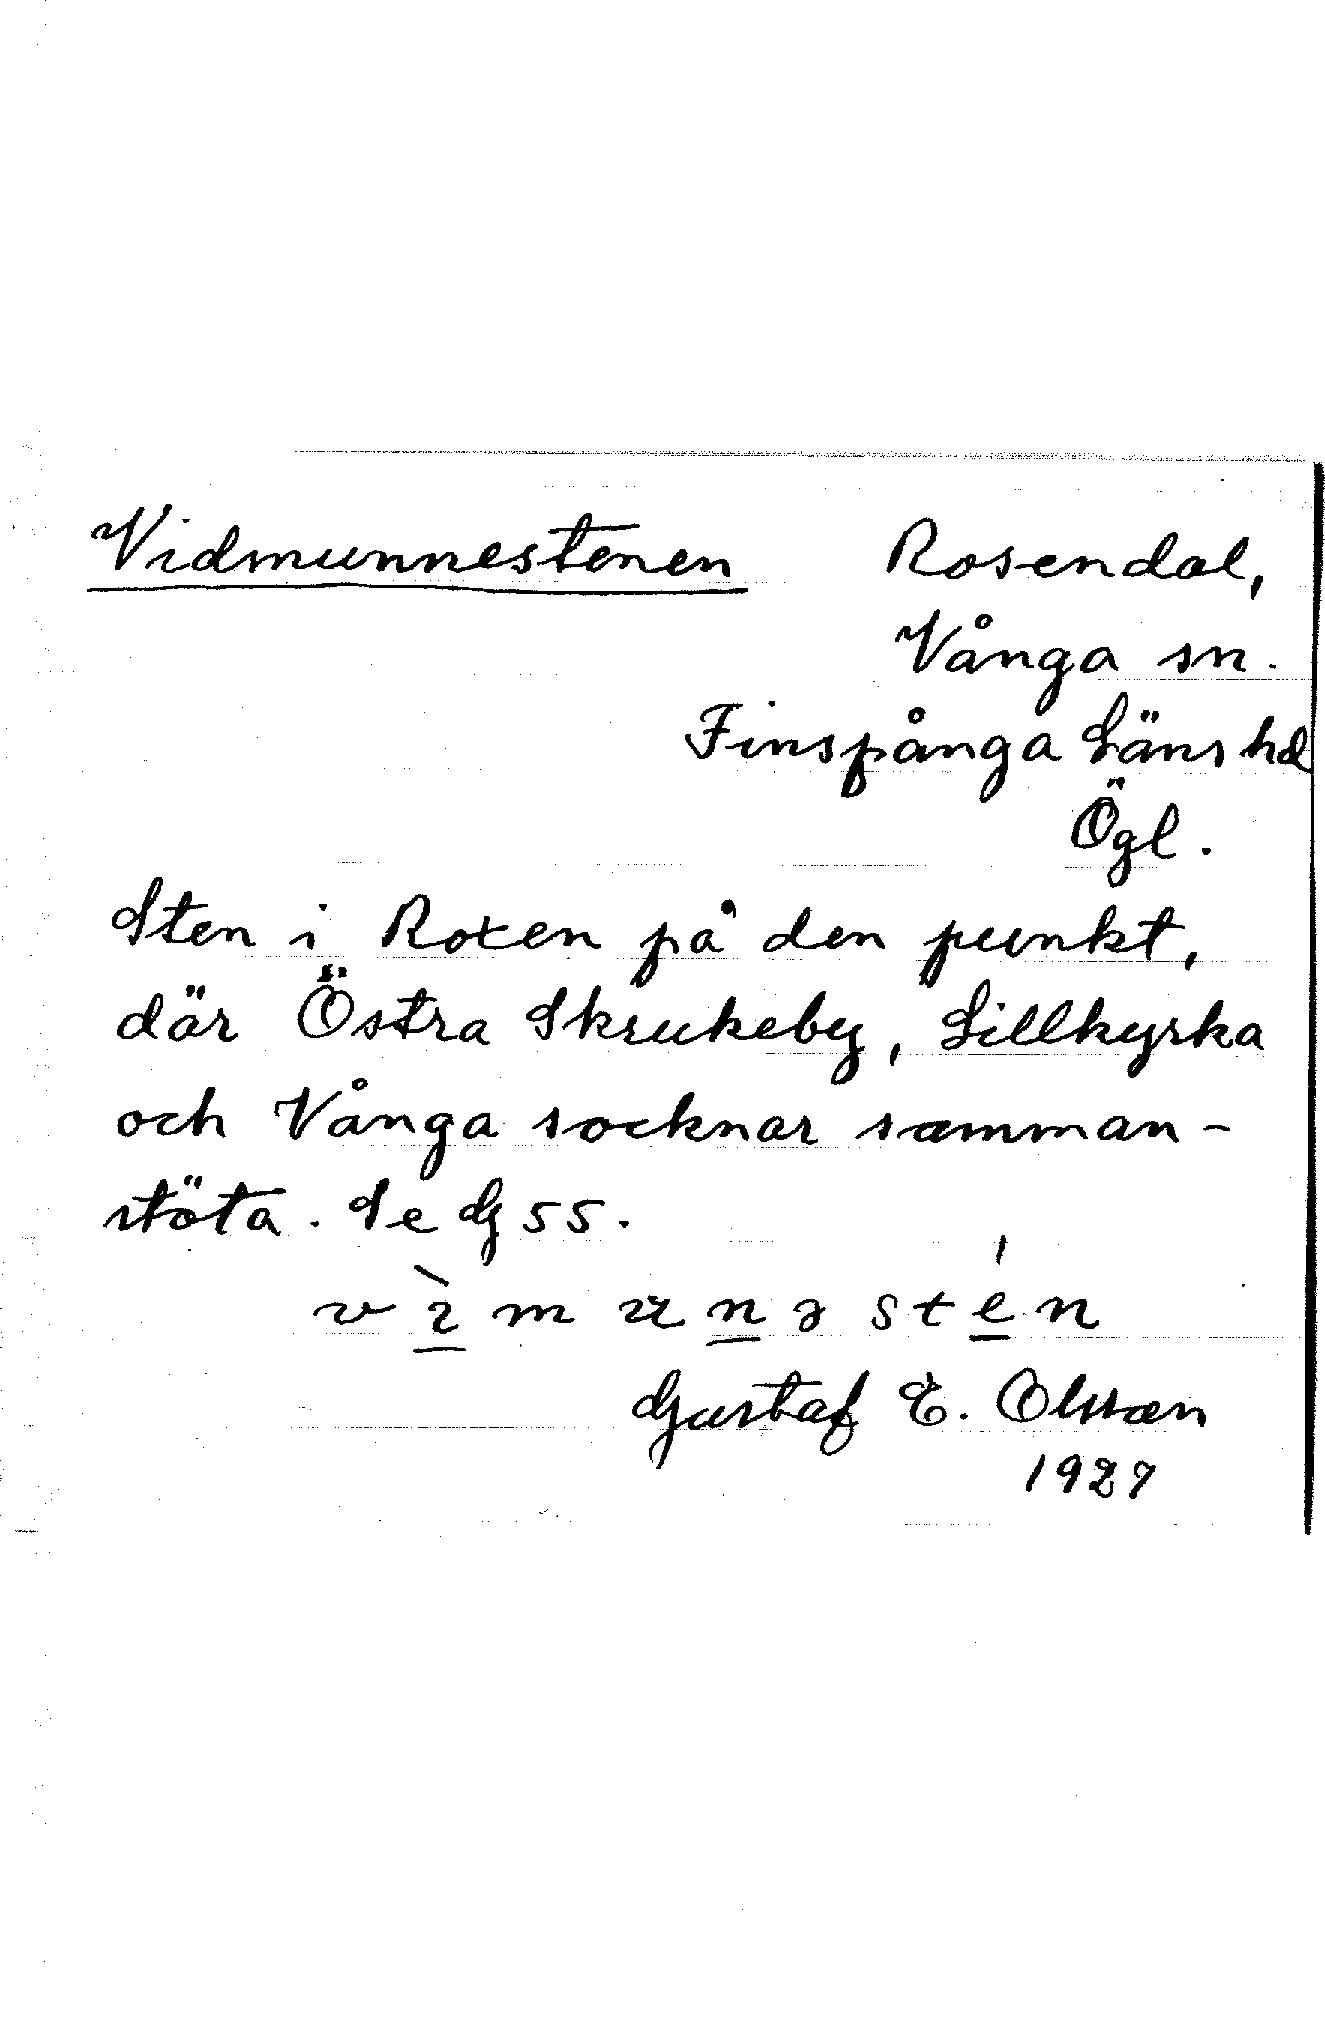 Vidmunnestenen Rosendal,
Vånga sn.
Finspånga Läns hd
Ögl.
Sten i Roxen på den punkt,
där Östra Skrukeby, Lillkyrka
och Vånga socknar samman-
stöta. Se G 55.
vìmunəstén
Gustaf E. Olsson
1927